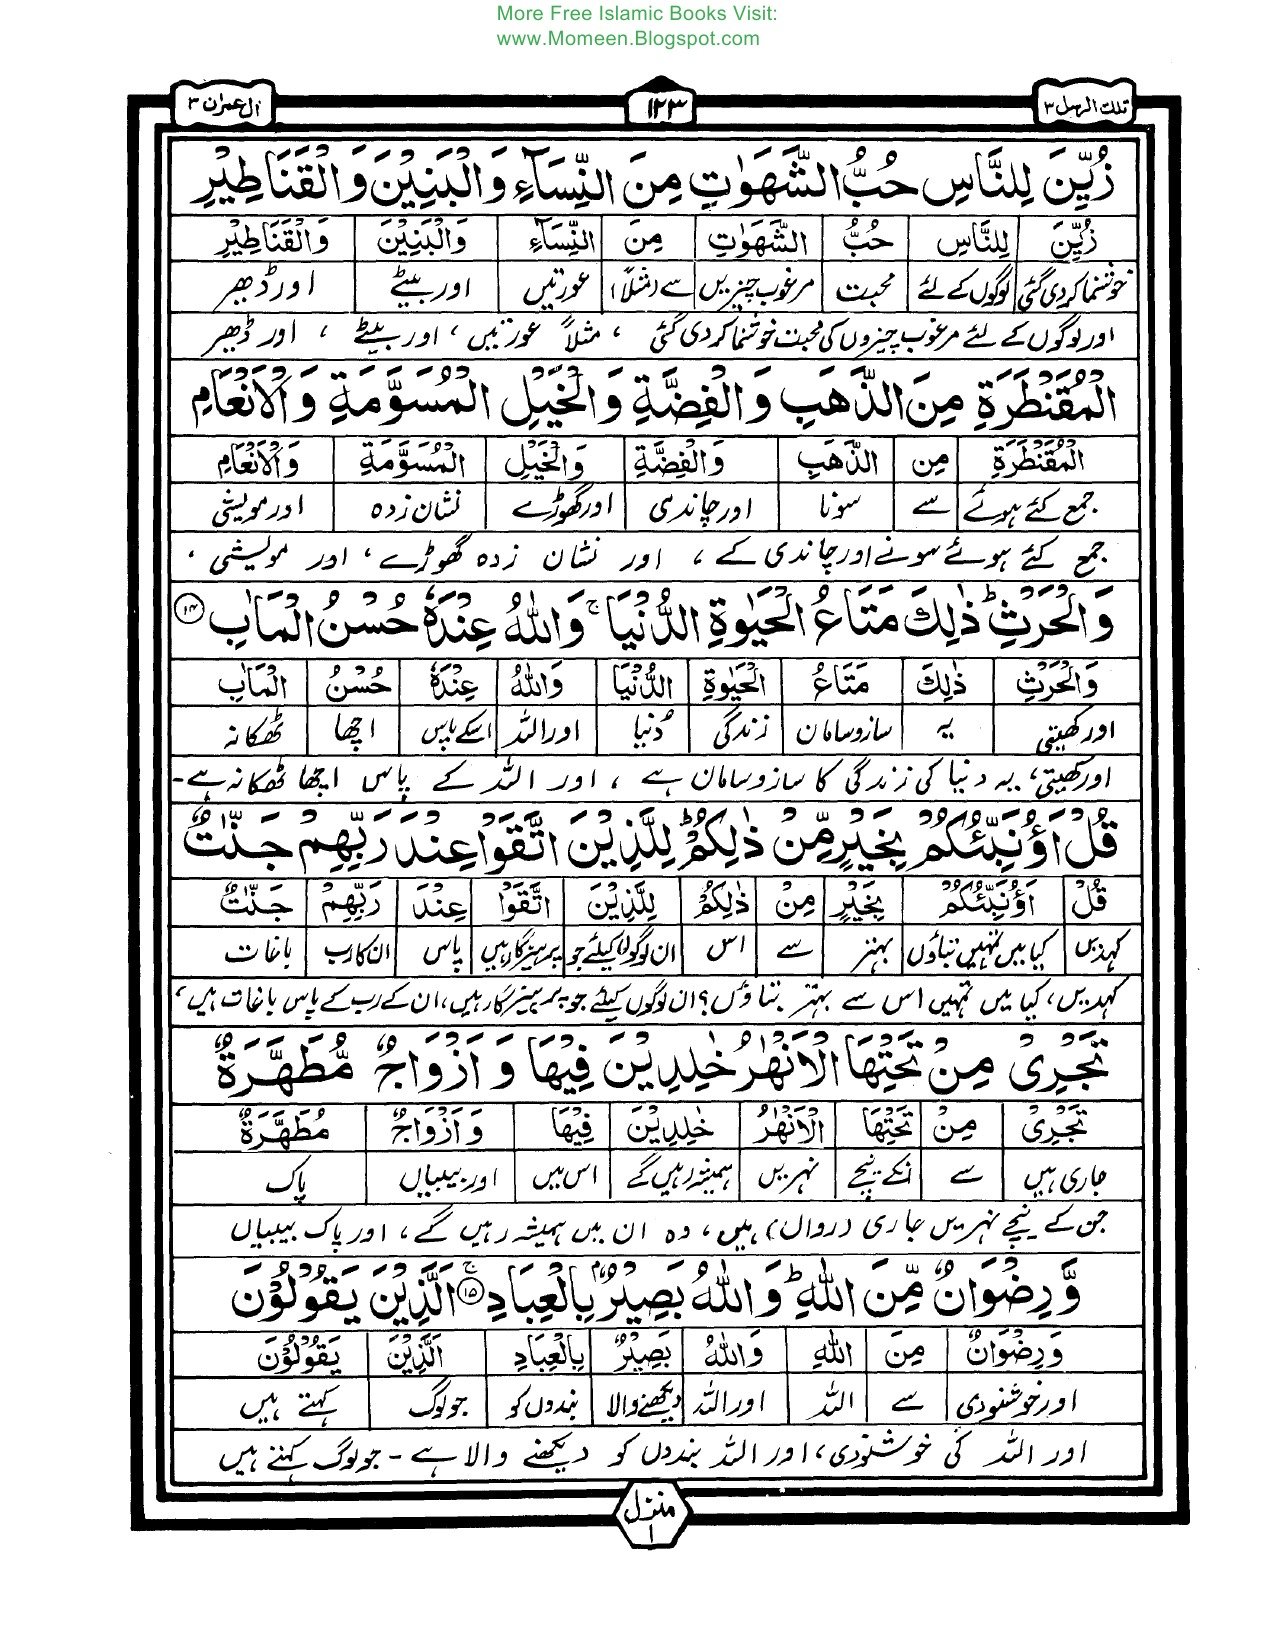 More Free Islamic Books Visit:
www.Momeen.Blogspot.com
تلك الرسل ٣ ١٢٣ اٰل عمران ٣
زُيِّنَ لِلنَّاسِ حُبُّ الشَّهَوٰتِ مِنَ النِّسَآءِ وَالْبَنِيْنَ وَالْقَنَاطِيْرِ
زُيِّنَ لِلنَّاسِ حُبُّ الشَّهَوٰتِ مِنَ النِّسَآءِ وَالْبَنِيْنَ وَالْقَنَاطِيْرِ
خوشنما کر دی گئی لوگوں کے لئے محبت مرغوب چیزیں سے (مثلاً) عورتیں اور بیٹے اور ڈھیر
اور لوگوں کے لئے مرغوب چیزوں کی محبت خوشنما کر دی گئی ، مثلاً عورتیں ، اور بیٹے ، اور ڈھیر
الْمُقَنْطَرَةِ مِنَ الذَّهَبِ وَالْفِضَّةِ وَالْخَيْلِ الْمُسَوَّمَةِ وَالْاَنْعَامِ
الْمُقَنْطَرَةِ مِنَ الذَّهَبِ وَالْفِضَّةِ وَالْخَيْلِ الْمُسَوَّمَةِ وَالْاَنْعَامِ
جمع کئے ہوئے سے سونا اور چاندی اور گھوڑے نشان زدہ اور مویشی
جمع کئے ہوئے سونے اور چاندی کے ، اور نشان زدہ گھوڑے ، اور مویشی ،
وَالْحَرْثِ ؕ ذٰلِكَ مَتَاعُ الْحَيٰوةِ الدُّنْيَا ۚ وَاللّٰهُ عِنْدَهٗ حُسْنُ الْمَاٰبِ ۱۴
وَالْحَرْثِ ذٰلِكَ مَتَاعُ الْحَيٰوةِ الدُّنْيَا وَاللّٰهُ عِنْدَهٗ حُسْنُ الْمَاٰبِ
اور کھیتی یہ سازو سامان زندگی دُنیا اور اللہ اسکے پاس اچھا ٹھکانہ
اور کھیتی، یہ دنیا کی زندگی کا سازو سامان ہے ، اور اللہ کے پاس اچھا ٹھکانہ ہے۔
قُلْ اَؤُنَبِّئُكُمْ بِخَيْرٍ مِّنْ ذٰلِكُمْ ؕ لِلَّذِيْنَ اتَّقَوْا عِنْدَ رَبِّهِمْ جَنّٰتٌ
قُلْ اَؤُنَبِّئُكُمْ بِخَيْرٍ مِنْ ذٰلِكُمْ لِلَّذِيْنَ اتَّقَوْا عِنْدَ رَبِّهِمْ جَنّٰتٌ
کہدیں کیا میں تمہیں بتاؤں بہتر سے اس ان لوگوں کیلئے جو پرہیزگار ہیں پاس ان کا رب باغات
کہدیں، کیا میں تمہیں اس سے بہتر بتاؤں؟ ان لوگوں کیلئے جو پرہیزگار ہیں، ان کے رب کے پاس باغات ہیں،
تَجْرِىْ مِنْ تَحْتِهَا الْاَنْهٰرُ خٰلِدِيْنَ فِيْهَا وَ اَزْوَاجٌ مُّطَهَّرَةٌ
تَجْرِىْ مِنْ تَحْتِهَا الْاَنْهٰرُ خٰلِدِيْنَ فِيْهَا وَ اَزْوَاجٌ مُطَهَّرَةٌ
جاری ہیں سے انکے نیچے نہریں ہمیشہ رہیں گے اس میں اور بیبیاں پاک
جن کے نیچے نہریں جاری (رواں) ہیں، وہ ان میں ہمیشہ رہیں گے ، اور پاک بیبیاں
وَّرِضْوَانٌ مِّنَ اللّٰهِ ؕ وَاللّٰهُ بَصِيْرٌۢ بِالْعِبَادِ ۚ ۱۵ اَلَّذِيْنَ يَقُوْلُوْنَ
وَرِضْوَانٌ مِنَ اللّٰهِ وَاللّٰهُ بَصِيْرٌ بِالْعِبَادِ اَلَّذِيْنَ يَقُوْلُوْنَ
اور خوشنودی سے اللہ اور اللہ دیکھنے والا بندوں کو جو لوگ کہتے ہیں
اور اللہ کی خوشنودی ، اور اللہ بندوں کو دیکھنے والا ہے - جو لوگ کہتے ہیں
منزل
۱